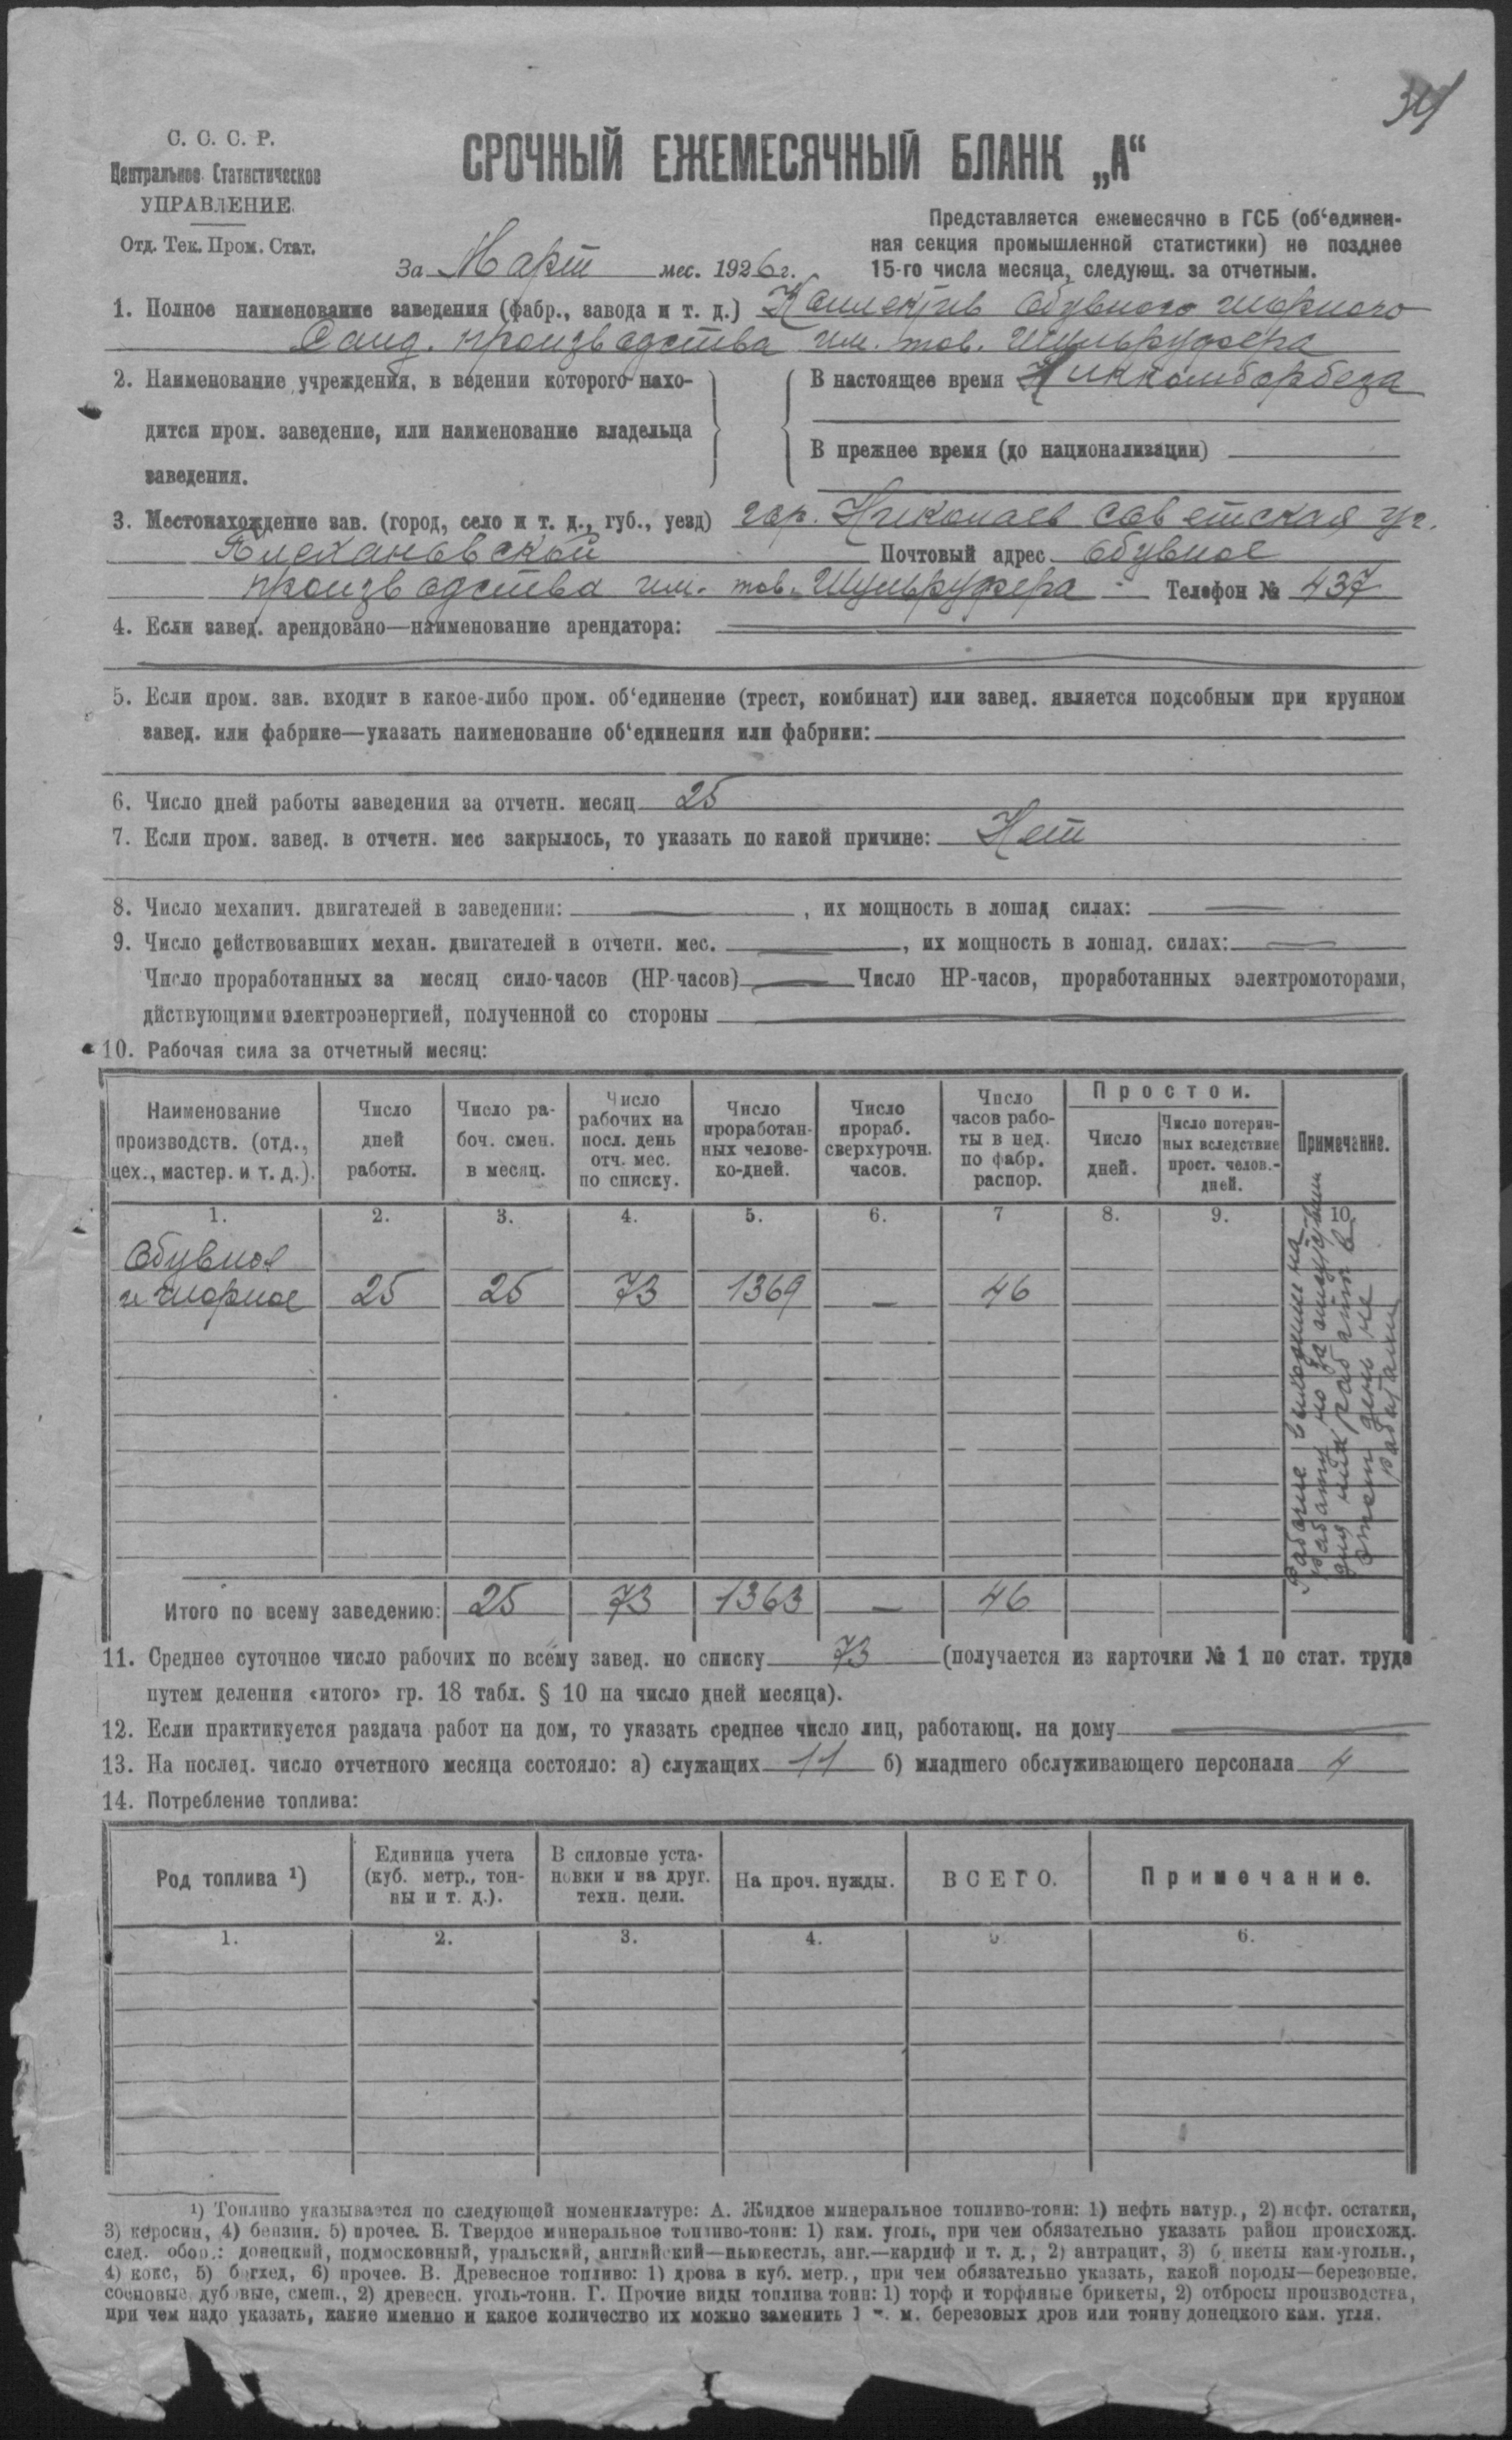 34
С. С. С. Р.
Центральное Статистическое
УПРАВЛЕНИЕ.
Отд. Тек. Пром. Стат.
СРОЧНЫЙ ЕЖЕМЕСЯЧНЫЙ БЛАНК „А“
Представляется ежемесячно в ГСБ (об‘единен-
ная секция промышленной статистики) не позднее
15-го числа месяца, следующ. за отчетным.
За Март мес. 1926 г.
1. Полное наименование заведения (фабр., завода и т. д.) Коллектив Обувного шорного
Санд. производства им. тов. Шульруфера
2. Наименование учреждения, в ведении которого нахо-
дится пром. заведение, или наименование владельца
заведения.
В настоящее время Никкомборбеза
В прежнее время (до национализации)
3. Местонахождение зав. (город, село и т. д., губ., уезд) гор. Николаев Советская уг.
Плехановской Почтовый адрес Обувное
производства им. тов. Шульруфера Телефон № 437
4. Если завед. арендовано—наименование арендатора:
5. Если пром. зав. входит в какое-либо пром. об‘единение (трест, комбинат) или завед. является подсобным при крупном
завед. или фабрике—указать наименование об‘единения или фабрики:
6. Число дней работы заведения за отчетн. месяц 25
7. Если пром. завед. в отчетн. мес закрылось, то указать по какой причине: Нет
8. Число механич. двигателей в заведении: — , их мощность в лошад силах: —
9. Число действовавших механ. двигателей в отчетн. мес. — , их мощность в лошад. силах: —
Число проработанных за месяц сило-часов (НР-часов) — Число НР-часов, проработанных электромоторами,
дйствующими электроэнергией, полученной со стороны —
10. Рабочая сила за отчетный месяц:
Наименование
производств. (отд.,
цех., мастер. и т. д.).
Число
дней
работы.
Число ра-
боч. смен.
в месяц.
Число
рабочих на
посл. день
отч. мес.
по списку.
Число
проработан-
ных челове-
ко-дней.
Число
прораб.
сверхурочн.
часов.
Число
часов рабо-
ты в нед.
по фабр.
распор.
Простои.
Число
дней.
Число потерян-
ных вследствие
прост. челов.-
дней.
Примечание.
1. 2. 3. 4. 5. 6. 7 8. 9. 10.
Обувное
и шорное 25 25 73 1369 — 46
Рабочие
работу но за отсутствием
для них работ в
этот день не
работали
Итого по всему заведению: 25 73 1363 — 46
11. Среднее суточное число рабочих по всему завед. по списку 73 (получается из карточки № 1 по стат. труда
путем деления «итого» гр. 18 табл. § 10 на число дней месяца).
12. Если практикуется раздача работ на дом, то указать среднее число лиц, работающ. на дому —
13. На послед. число отчетного месяца состояло: а) служащих 11 б) младшего обслуживающего персонала 4
14. Потребление топлива:
Род топлива ¹)
Единица учета
(куб. метр., тон-
ны и т. д.).
В силовые уста-
новки и на друг.
техн. цели.
На проч. нужды.
ВСЕГО.
Примечание.
1. 2. 3. 4. 5. 6.
¹) Топливо указывается по следующей номенклатуре: А. Жидкое минеральное топливо-тонн: 1) нефть натур., 2) нефт. остатки,
3) керосин, 4) бензин. 5) прочее. Б. Твердое минеральное топливо-тонн: 1) кам. уголь, при чем обязательно указать район происхожд.
след. обор.: донецкий, подмосковный, уральский, английский—ньюкестль, анг.—кардиф и т. д., 2) антрацит, 3) брикеты кам-угольн.,
4) кокс, 5) богхед, 6) прочее. В. Древесное топливо: 1) дрова в куб. метр., при чем обязательно указать, какой породы—березовые,
сосновые, дубовые, смеш., 2) древесн. уголь-тонн. Г. Прочие виды топлива тонн: 1) торф и торфяные брикеты, 2) отбросы производства,
при чем надо указать, какие именно и какое количество их можно заменить 1 к. м. березовых дров или тонну донецкого кам. угля.